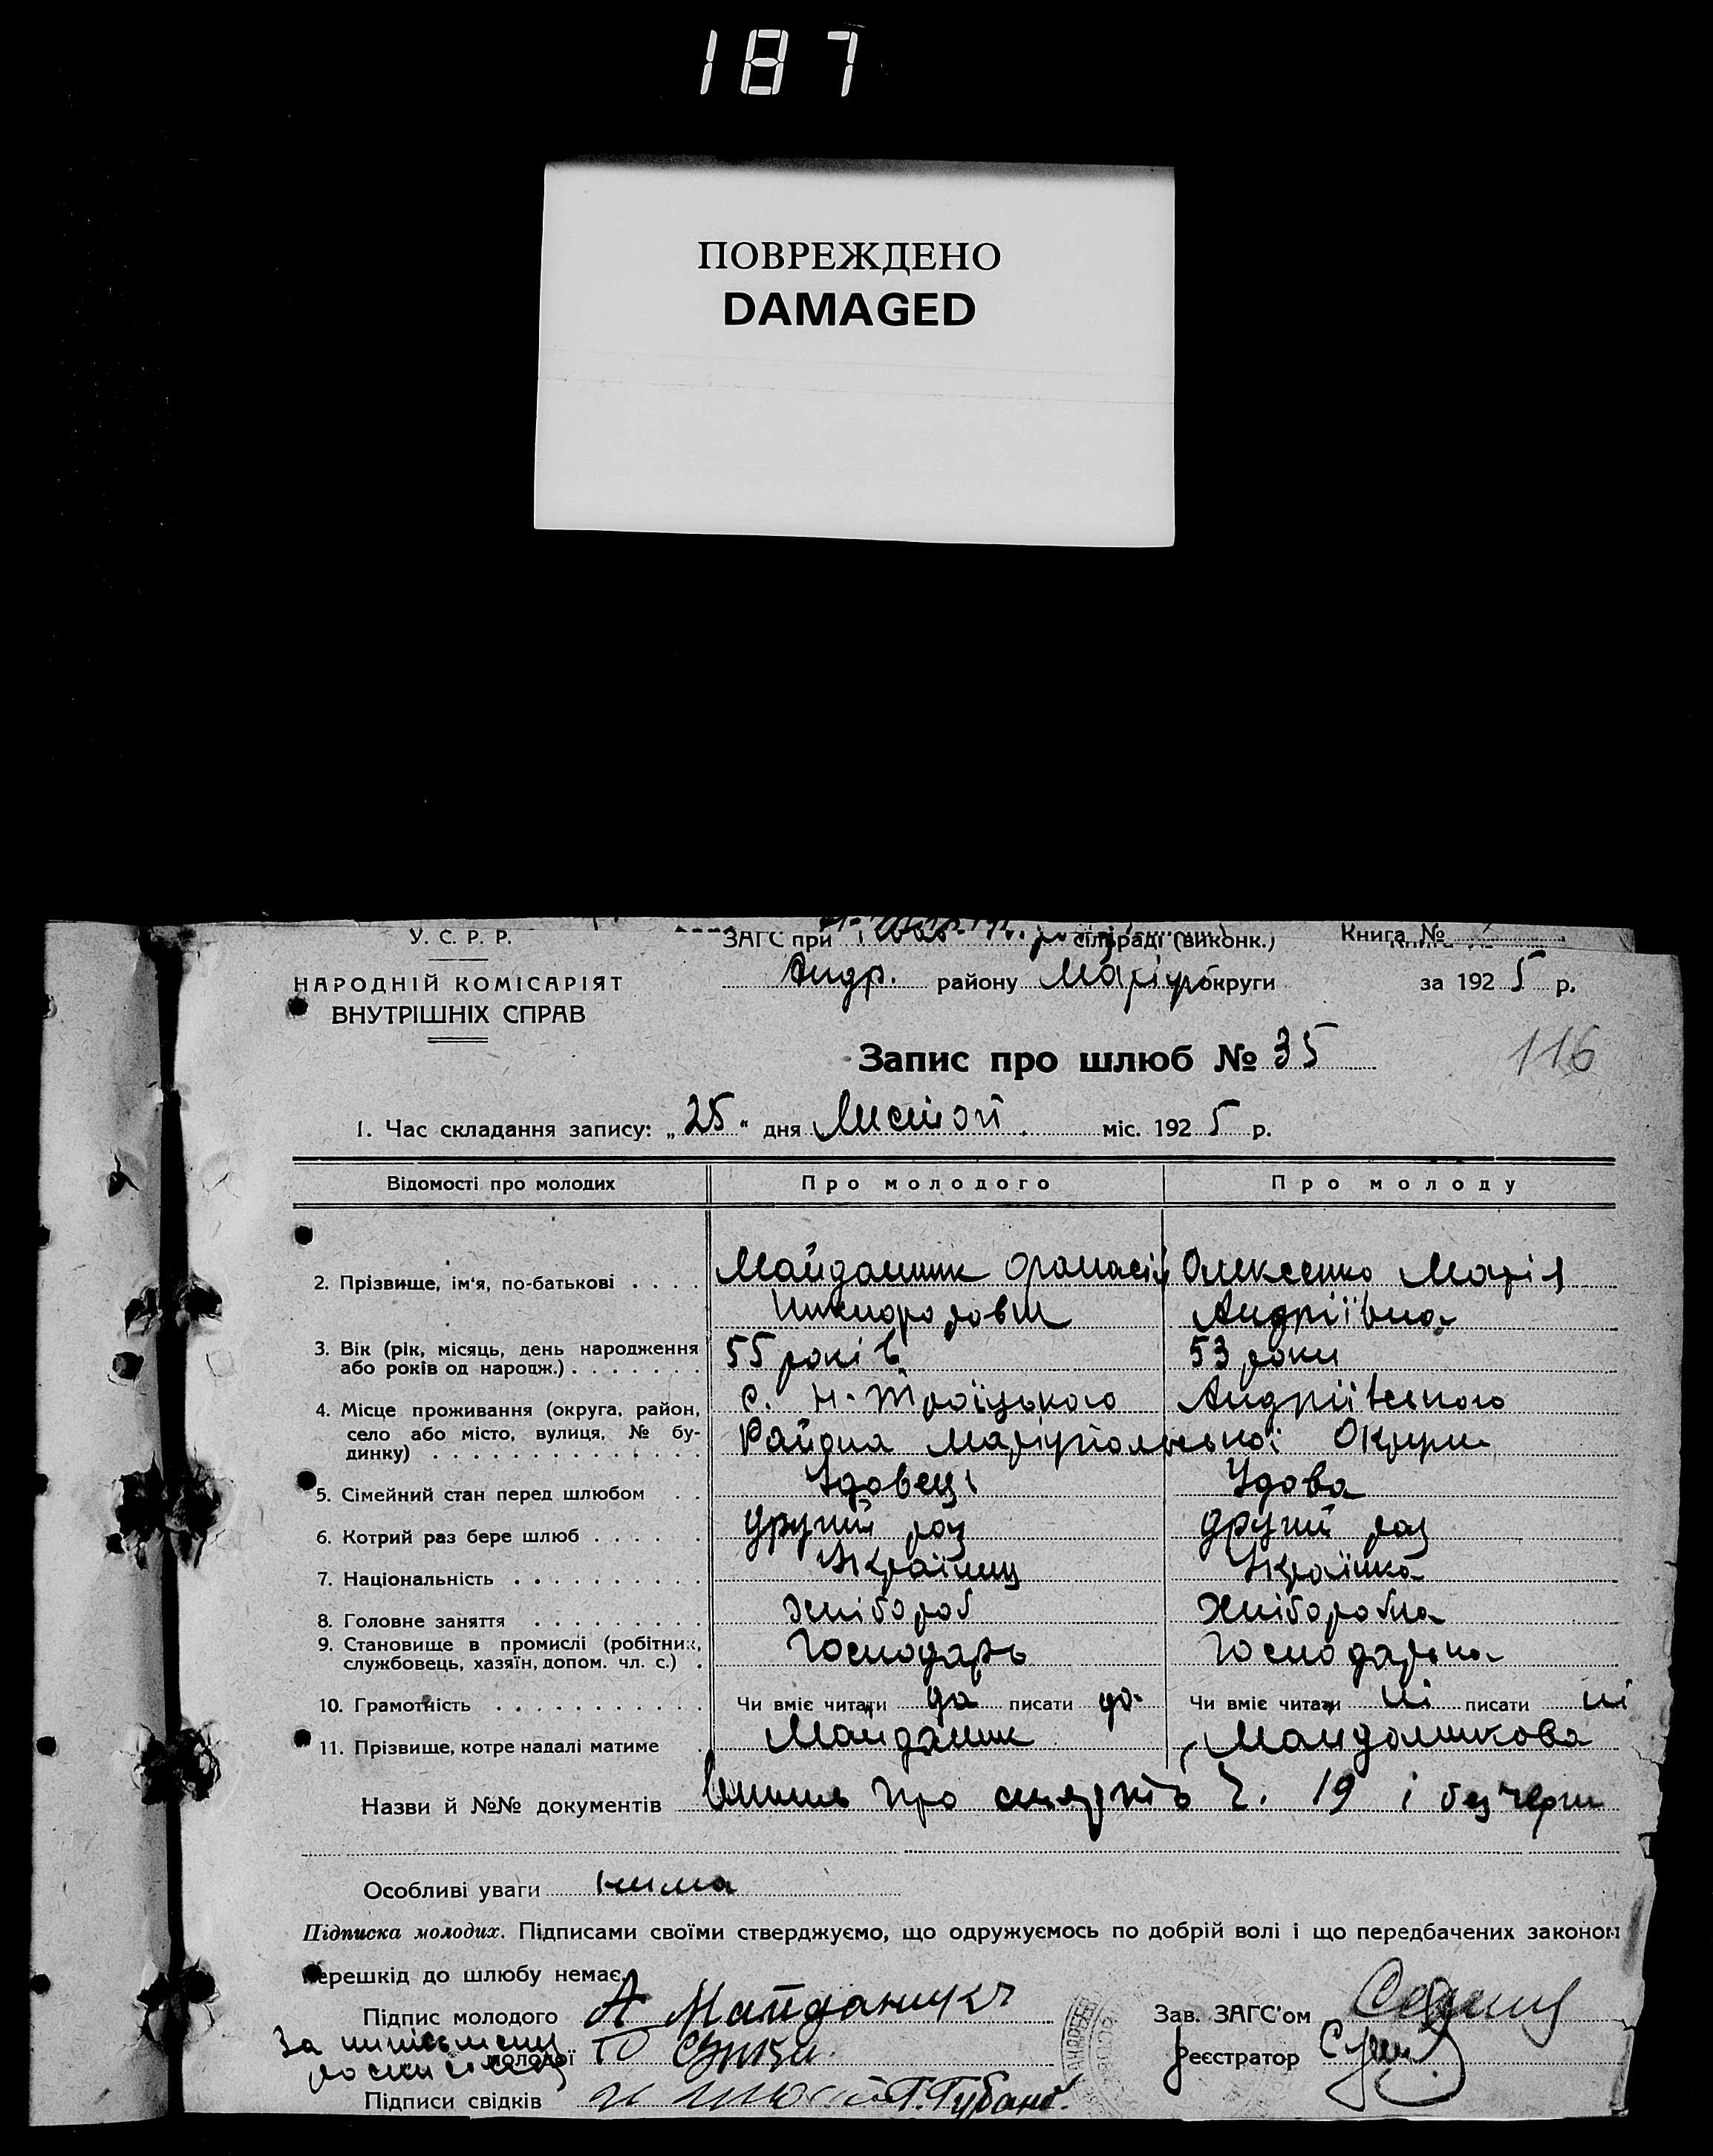 187
ПОВРЕЖДЕНО
DAMAGED
У. С. Р. Р.
ЗАГС при сільраді (виконк.) Книга №
НАРОДНІЙ КОМІСАРІЯТ
ВНУТРІШНІХ СПРАВ
Андр. району Маріуп округи за 1925 р.
Запис про шлюб № 35
116
1. Час складання запису: „25“ дня Листоп. міс. 1925 р.
Відомості про молодих Про молодого Про молоду
2. Прізвище, ім'я, по-батькові . . . . Майданник Опанасій Олексенко Марія
Андріївна
3. Вік (рік, місяць, день народження
або років од народж.) . . . . . . . 55 років 53 роки
4. Місце проживання (округа, район,
село або місто, вулиця, № бу-
динку) . . . . . . . . . . . . . .
с. Н-Троїцького Андріівського
Района Маріупольської Округи
5. Сімейний стан перед шлюбом . . Удовець Удова
6. Котрий раз бере шлюб . . . . . . другий раз другий раз
7. Національність . . . . . . . . . . Українец Українка
8. Головне заняття . . . . . . . . . Хлібороб Хліборобка
9. Становище в промислі (робітник,
службовець, хазяїн, допом. чл. с.) . Господарь Господарька
10. Грамотність . . . . . . . . . . . Чи вміє читати да писати да Чи вміє читати ні писати ні
11. Прізвище, котре надалі матиме . Майданик Майданикова
Назви й №№ документів про смерть Ч. 19 і без черги
Особливі уваги нима
Підписка молодих. Підписами своїми стверджуємо, що одружуємось по добрій волі і що передбачених законом
перешкід до шлюбу немає.
Підпис молодого А Майданикъ Зав. ЗАГС'ом
За
молодої Реєстратор
Підписи свідків Г. Губано